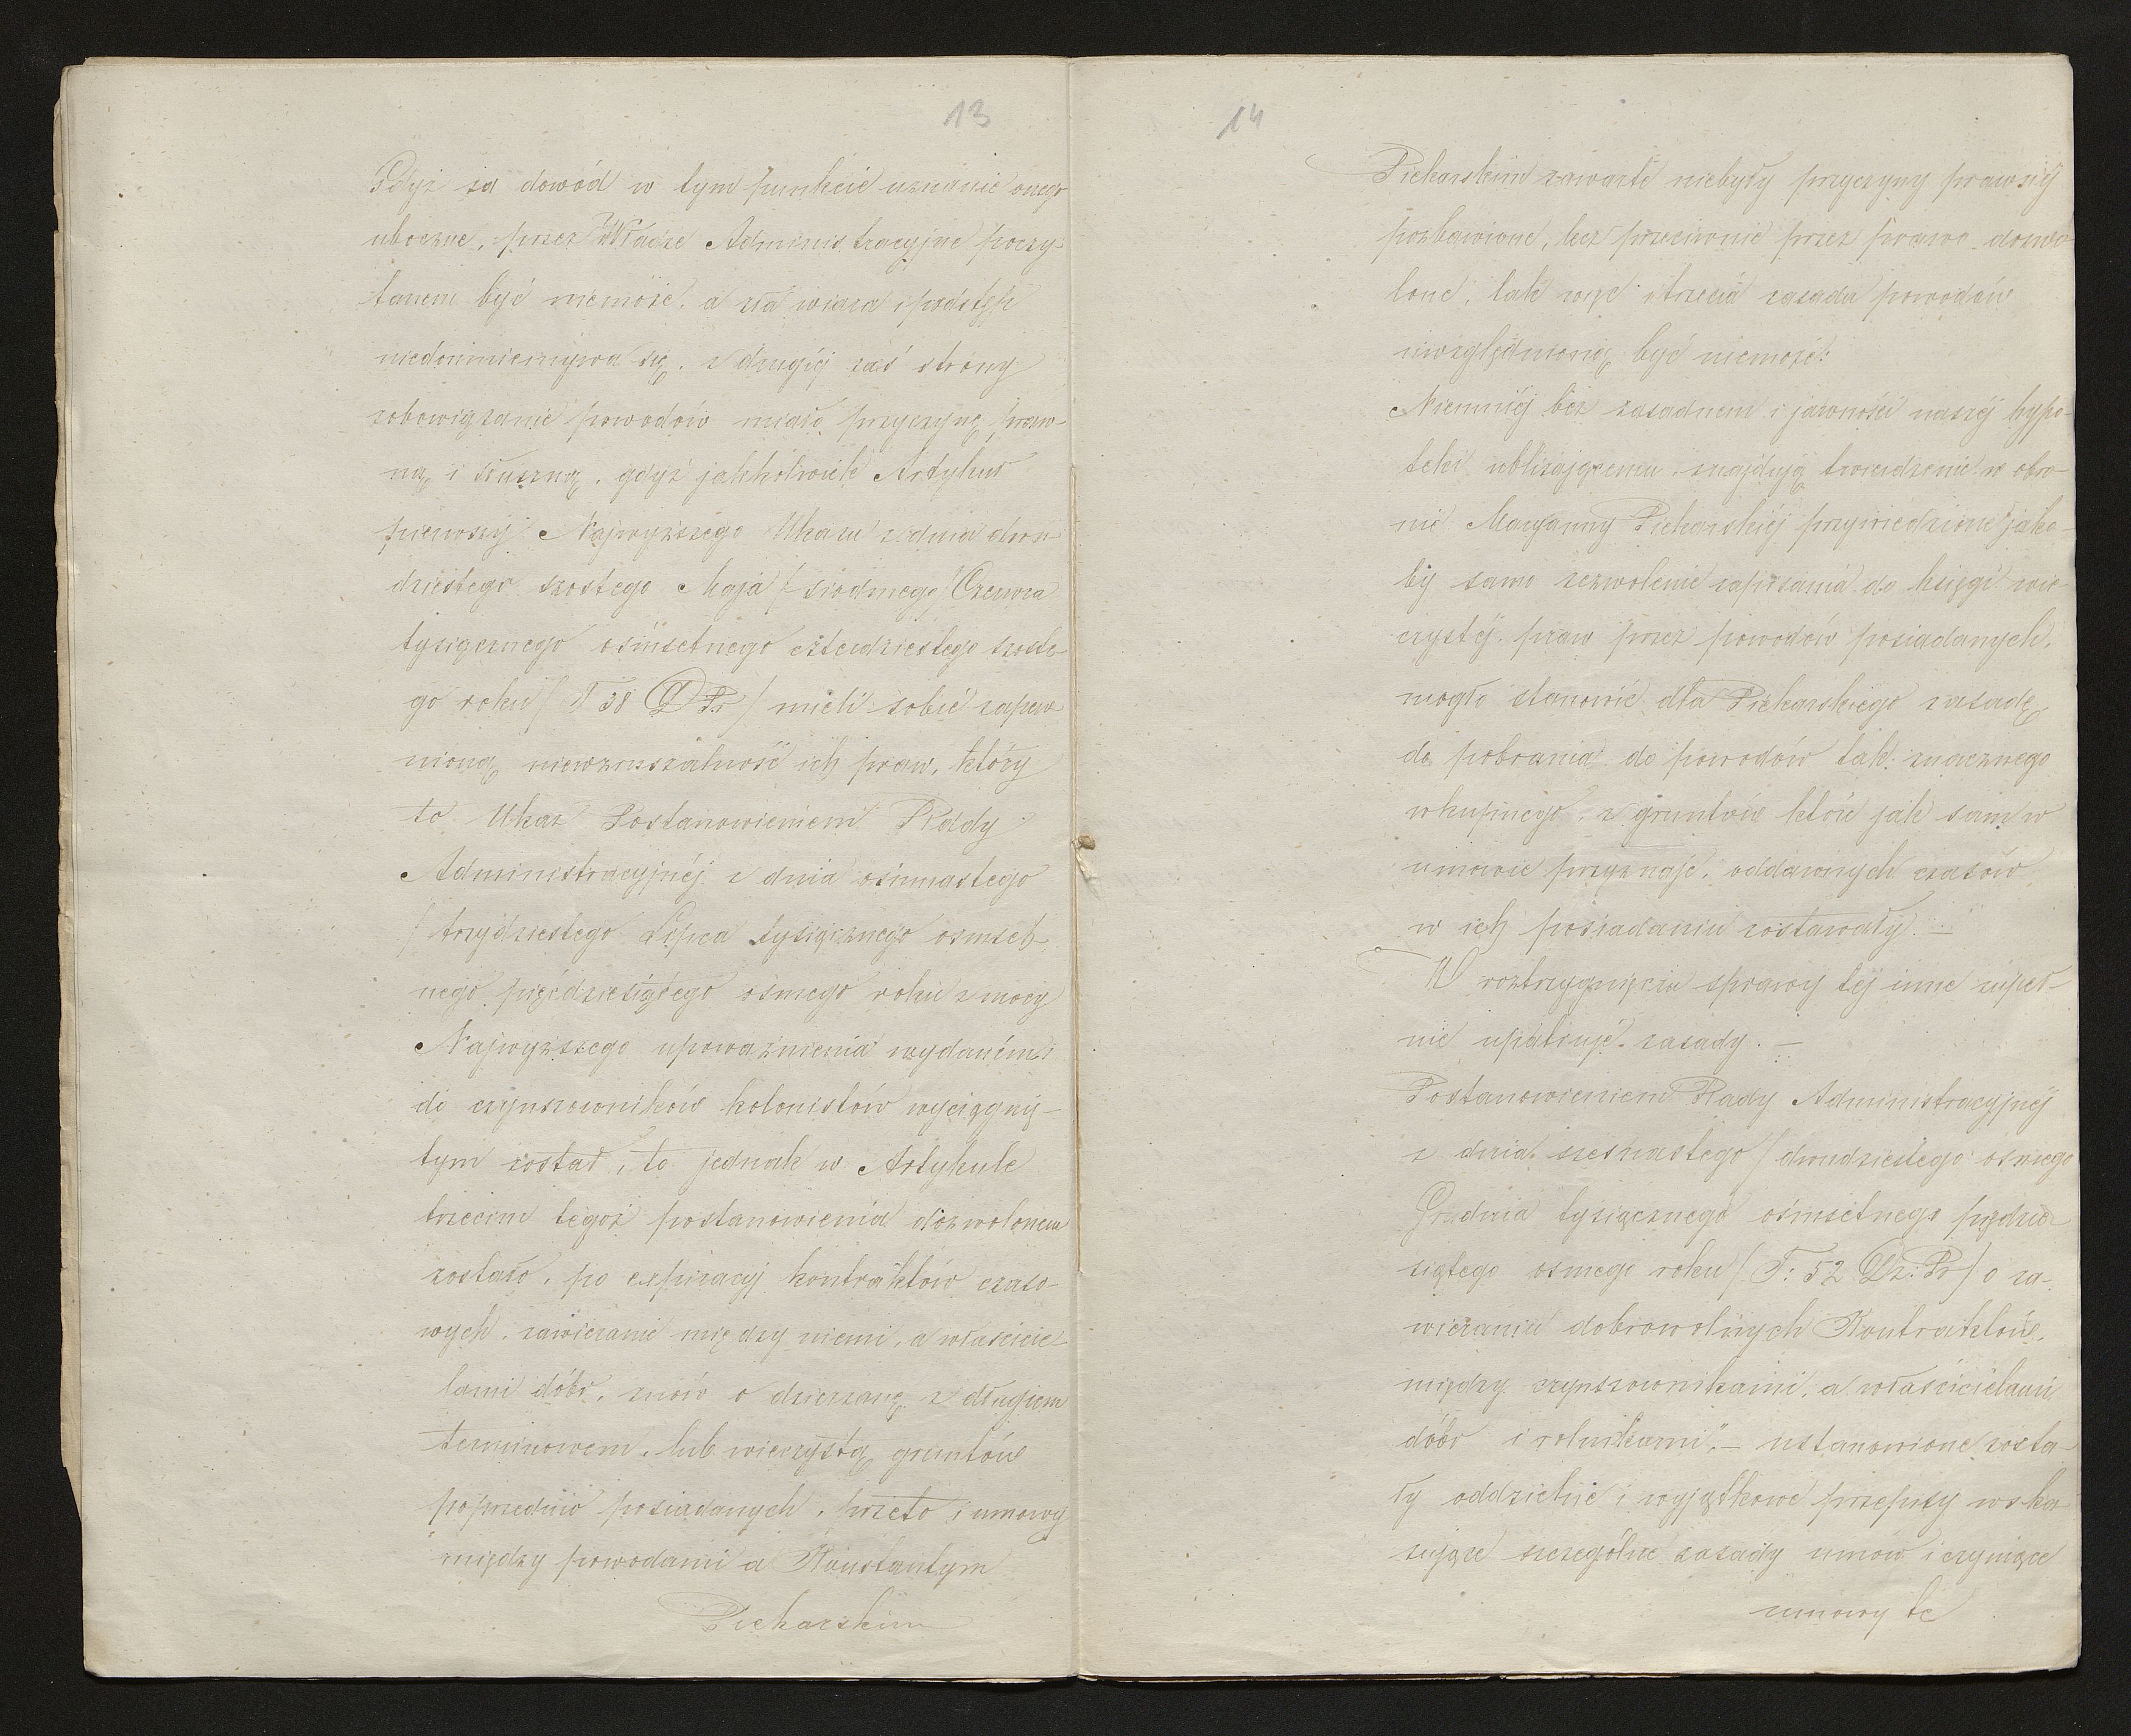 13
Gdyż za dowód w tym punkcie uznanie onego
uboczne, przez Władze Administracyjne poczy-
tanem być niemoże, a zła wiara i podstęp
niedomniemywa się, z drugiéj zaś strony
zobowiązanie powodów miało przyczynę praw-
ną i słuszną, gdyż jakkolwiek Artykuł
pierwszy Najwyższego Ukazu z dnia dwu-
dziestego szóstego Maja / siódmego Czerwca
tysiącznego ośmsetnego czterdziestego szóste-
go roku / T 38 D Pr / mieli sobie zapew
nioną niewzruszalność ich praw, który
to Ukaz Postanowieniem Rady
Administracyjnéj z dnia ośmnastego
/ trzydziestego Lipca tysiącznego ośmset-
nego pięćdziesiątego ósmego roku z mocy
Najwyższego upoważnienia wydaném
do czynszowników kolonistów wyciągnię-
tym został, to jednak w Artykule
trzecim tegoż postanowienia dozwolonem
zostało, po expiracyi kontraktów czaso-
wych, zawieranie między niemi, a właścicie-
lami dóbr, umów o dzierżawę z długiem
terminowem, lub wieczystą gruntów
poprzednio posiadanych, przeto i umowy
między powodami a Konstantym
Piekarskim
14
Piekarskim zawarte niebyły przyczyny prawnéj
pozbawione, lecz przeciwnie przez prawo dozwo
lone, tak więc i trzecia zasada powodów
uwzględnioną być niemoże:
Niemniéj bez zasadnem i jawności naszéj hypo-
teki ubliżającemu, znajduję twierdzenie w obro-
nie Maryanny Piekarskiéj przywiedzione jako-
by samo zezwolenie zapisania do księgi wie-
czystéj praw przez powodów posiadanych,
mogło stanowić dla Piekarskiego zasadę
do pobrania do powodów tak znacznego
wkupnego, z gruntów które jak sam w
umowie przyznaje, oddawnych czasów
w ich posiadaniu zostawały. —
W roztrzygnięciu sprawy téj inne zupeł-
nie upatruję zasady. —
Postanowieniem Rady Administracyjnéj
z dnia szesnastego / dwudziestego ósmego
Grudnia tysiącznego ośmsetnego pięćdzie-
siątego ósmego roku / T: 52 Dz: Pr / o za-
wieraniu dobrowolnych Kontraktów,
między czynszownikami, a właścicielami
dóbr i rolnikami," — ustanowione zosta-
ły oddzielne i wyjątkowe przepisy wska
zujące szczególne zasady umów i czyniące
umowy te